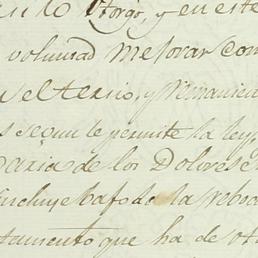 Otorgo, y en este
voluntad mejorar com
el tersio, y remanien
s segun le permite la ley
aria de los Dolores
incluye bajo de la reboca
tamento que ha de ot